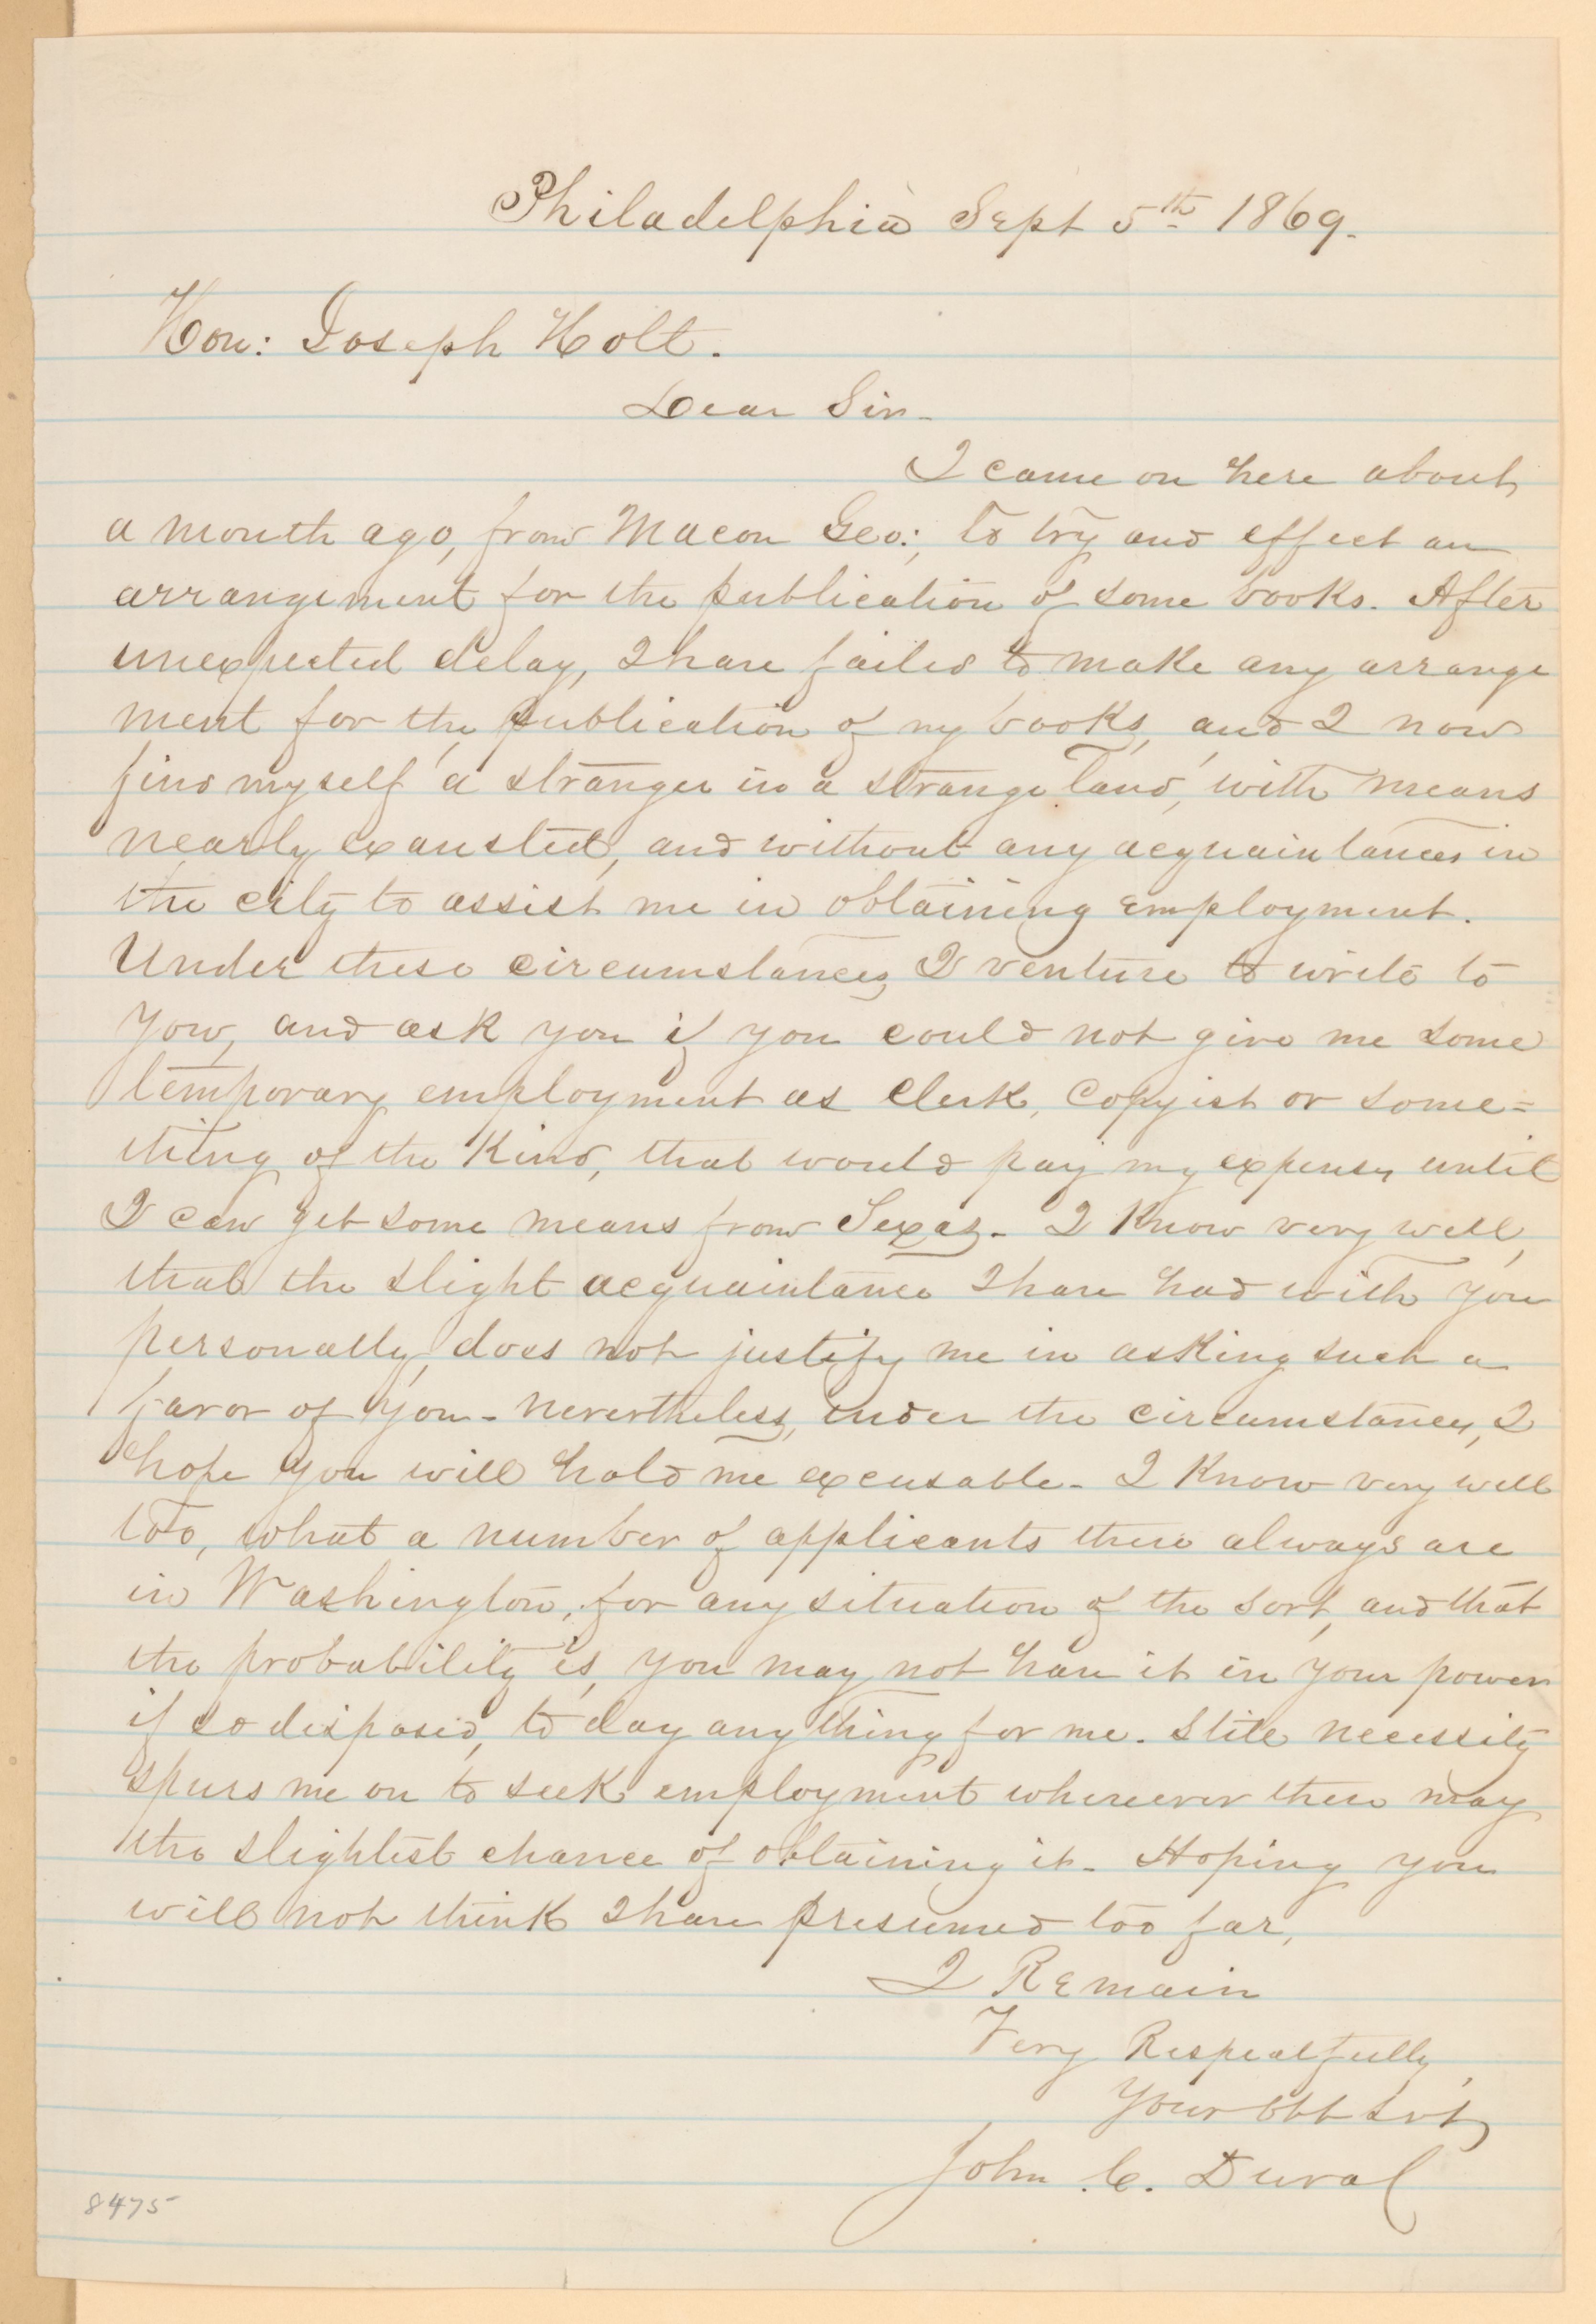 Philadelphia Sept 5th 1869.
Hon: Joseph Holt.
Dear Sir-
I came on here about
a month ago, from Macon Geo:, to try and effect an
arrangement for the publication of some books. After
unexpected delay, I have failed to make any arrange
ment for the publication of my books, and I now
find myself 'a stranger in a strange land', with means
nearly exausted, and without any acquaintances in
the city to assist me in obtaining employment.
Under these circumstances, I venture to write to
you, and ask you if you could not give me some
temporary employment as clerk, copyist or some=
thing of the kind, that would pay my expenses until
I can get some means from Texas. I know very well,
that the slight acquaintance I have had with you
personally, does not justify me in asking such a
favor of you - nevertheless, under the circumstances, I
hope you will hold me excusable - I know very well
too, what a number of applicants there always are
in Washington, for any situation of the sort, and that
the probability is, you may not have it in your power
if so disposed, to day any thing for me. Still necessity
spurs me on to seek employment whereever there may
the slightest chance of obtaining it - Hoping you
will not think I have presumed too far,
I Remain
Very Respectfully,
Your Obt Svt,
John C. Duval
8475